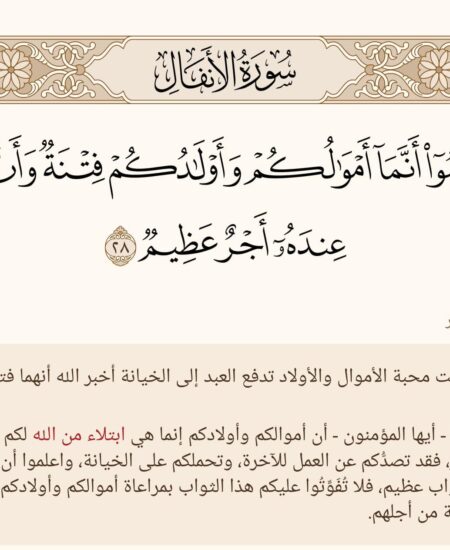 سُورَةُ الأَنفَالِ
أَنَّمَآ أَمْوَٰلُكُمْ وَأَوْلَـٰدُكُمْ فِتْنَةٌ
عِندَهُۥٓ أَجْرٌ عَظِيمٌ ٢٨
محبة الأموال والأولاد تدفع العبد إلى الخيانة أخبر الله أنهما
- أيها المؤمنون - أن أموالكم وأولادكم إنما هي ابتلاء من الله لكم
، فقد تصدُّكم عن العمل للآخرة، وتحملكم على الخيانة، واعلموا أن
عظيم، فلا تُفَوِّتُوا عليكم هذا الثواب بمراعاة أموالكم وأولادكم
من أجلهم.